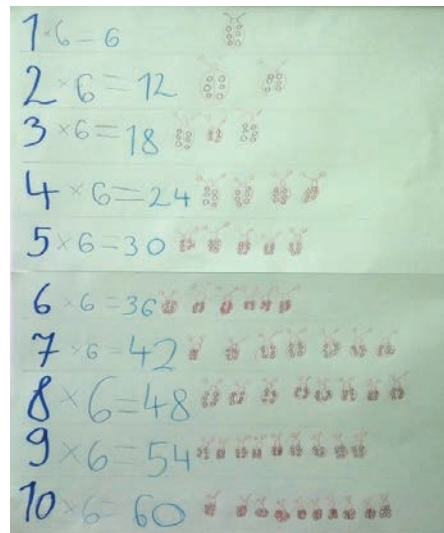 1×6=6
2×6=12
3×6=18
4×6=24
5×6=30
6×6=36
7×6=42
8×6=48
9×6=54
10×6=60